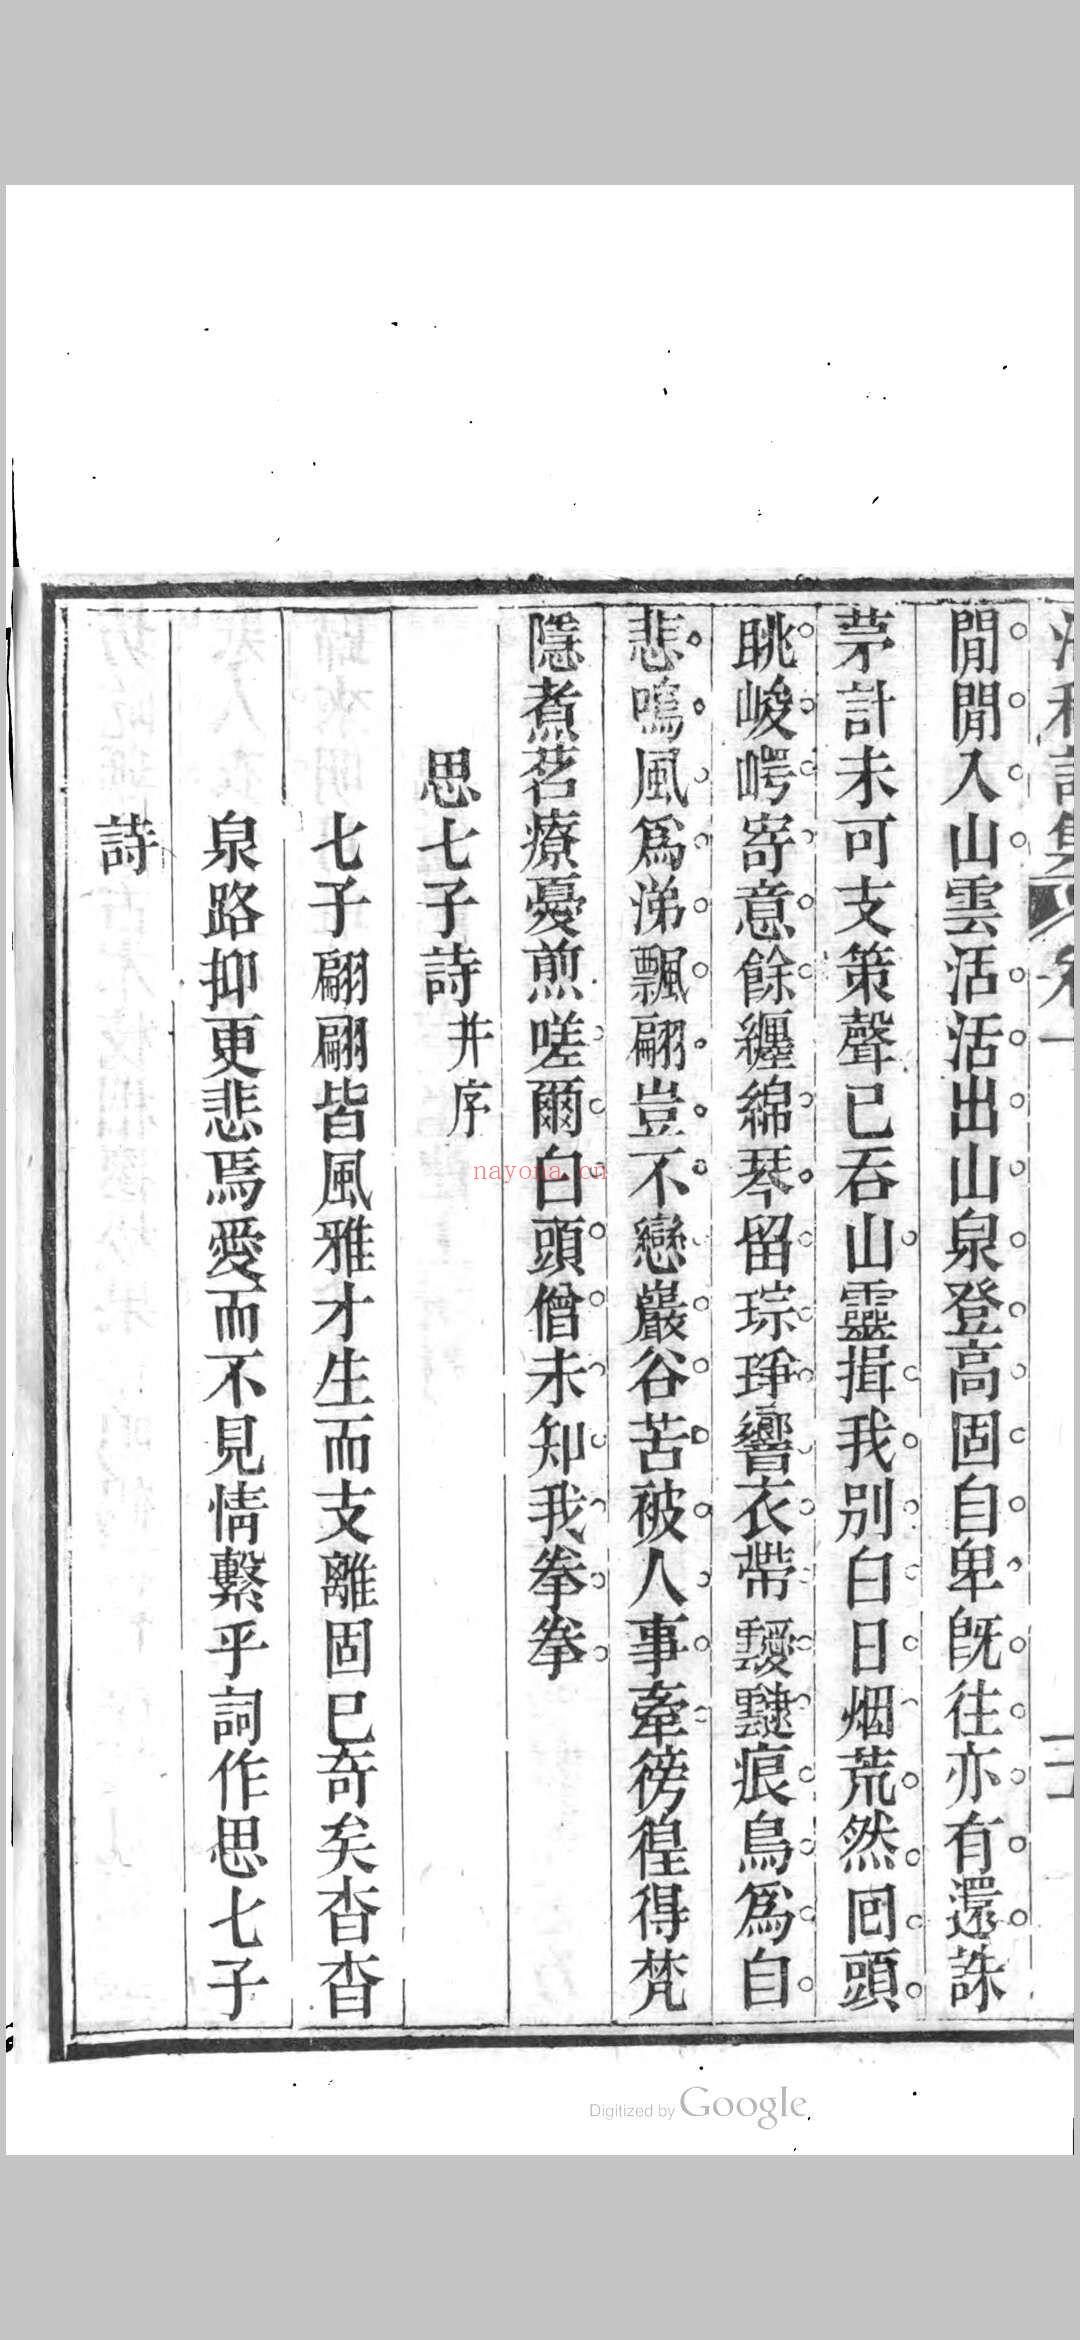 閒閒入山雲活活出山泉登高固自卑旣往亦有還誅
茅計未可支策聲已吞山靈揖我別白日烟荒然回頭
眺峻崿寄意餘纏綿琴留琮琤響衣帶靉靆痕鳥爲自
悲鳴風爲涕飄翩豈不戀巖谷苦被人事牽徬徨得梵
隱煮茗療憂煎嗟爾白頭僧未知我拳拳
思七子詩并序
七子翩翩皆風雅才生而支離固已奇矣杳杳
泉路抑更悲焉愛而不見情繫乎詞作思七子
詩
nayona.cn
Digitized by Google